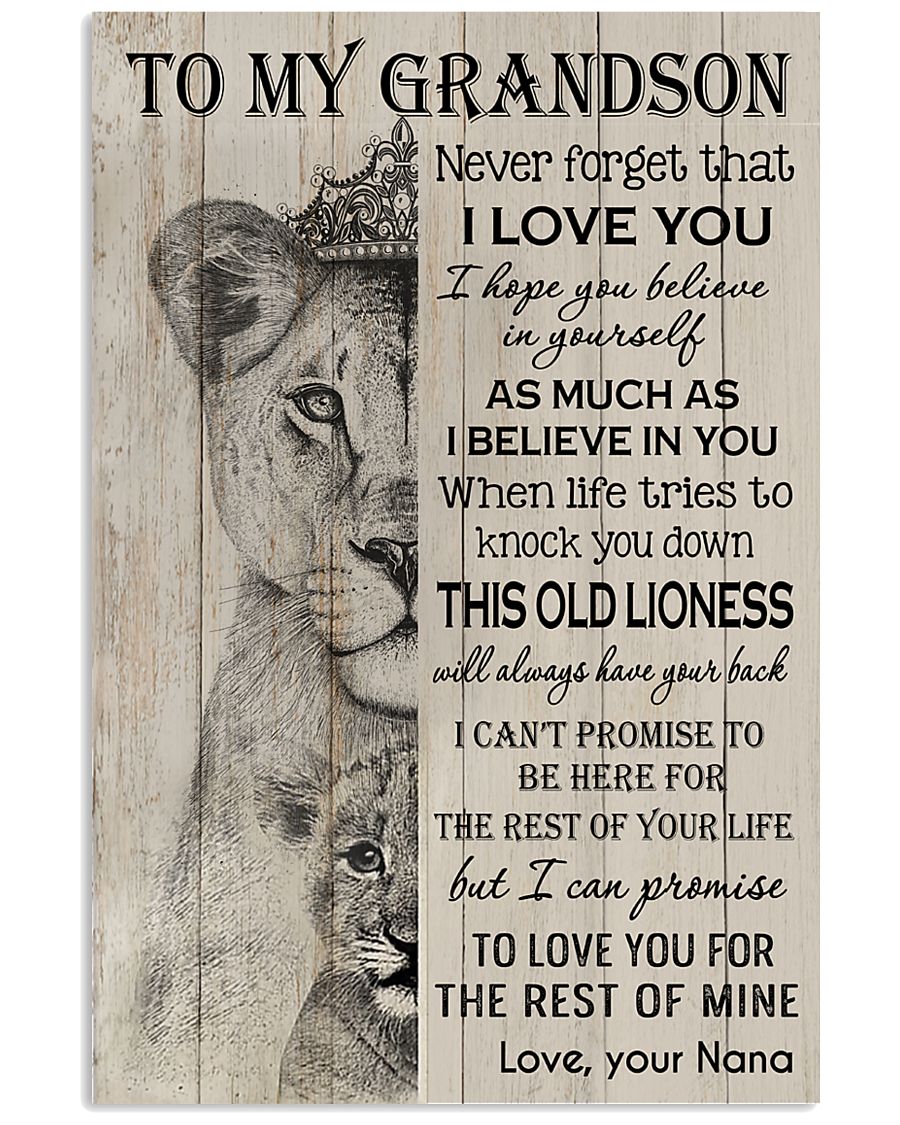 TO MY GRANDSON
Never forget that
I LOVE YOU
I hope you believe
in yourself
AS MUCH AS
I BELIEVE IN YOU
When life tries to
knock you down
THIS OLD LIONESS
will always have your back
I CAN'T PROMISE TO
BE HERE FOR
THE REST OF YOUR LIFE
but I can promise
TO LOVE YOU FOR
THE REST OF MINE
Love, your Nana